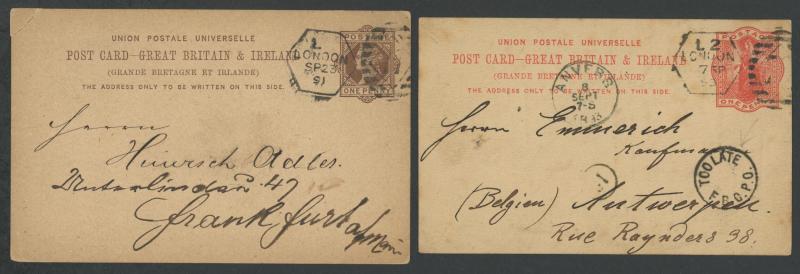 UNION POSTALE UNIVERSELLE
POST CARD–GREAT BRITAIN & IRELAND
(GRANDE BRETAGNE ET IRLANDE)
THE ADDRESS ONLY TO BE WRITTEN ON THIS SIDE.
POSTAGE
ONE PENNY
L
LONDON
SP23
91
Herrn
Heinrich Adler.
Unterlindau 47
Frankfurt a/Main
UNION POSTALE UNIVERSELLE
POST CARD–GREAT BRITAIN & IRELAND
(GRANDE BRETAGNE ET IRLANDE)
THE ADDRESS ONLY TO BE WRITTEN ON THIS SIDE.
POSTAGE
ONE PENNY
L2
LONDON
7 SP
ANVERS
8
SEPT
7-S
Herrn Emmerich
Kaufmann
TOO LATE
(Belgien) Antwerpen
Rue Raynders 38.